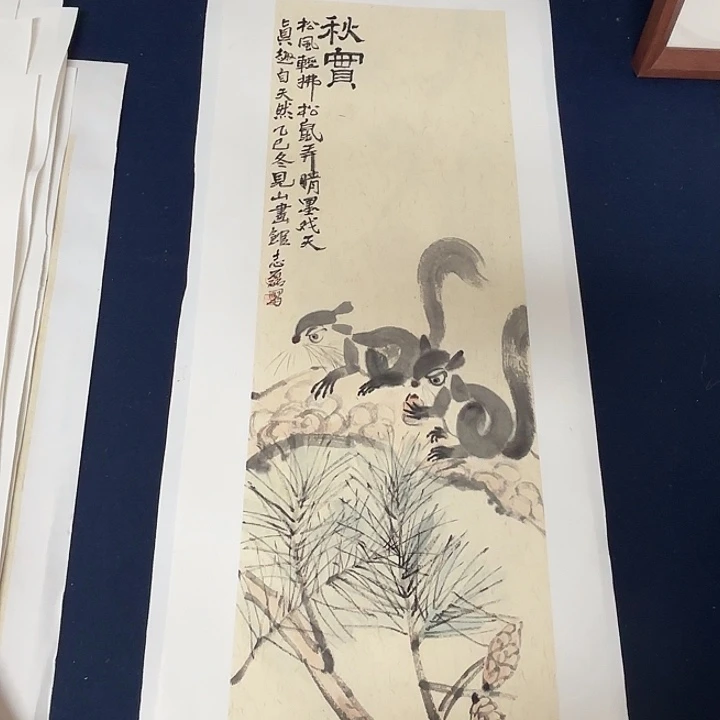 秋實
松風輕拂松鼠弄晴墨戏天
真趣自天然乙巳冬見山畫館志磊写